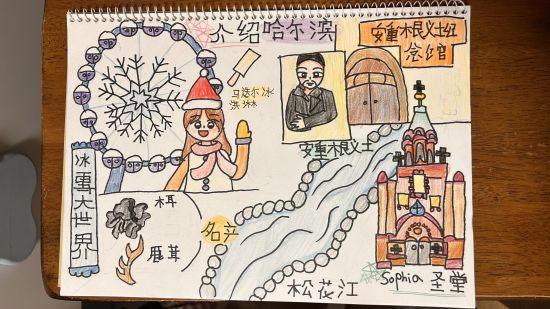 介绍哈尔滨
安重根义士纪
念馆
马迭尔冰
淇淋
安重根义士
冰雪大世界
木耳
鹿茸
名产
松花江
Sophia 圣堂